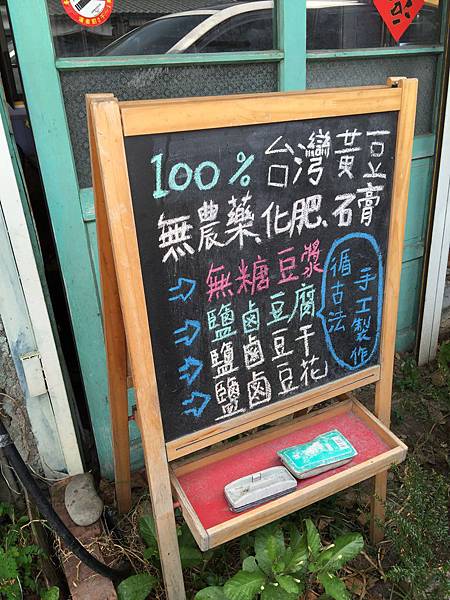 100% 台灣黃豆
無農藥、化肥、石膏
無糖豆漿
鹽鹵豆腐
鹽鹵豆干
鹽鹵豆花
循古法
手工製作